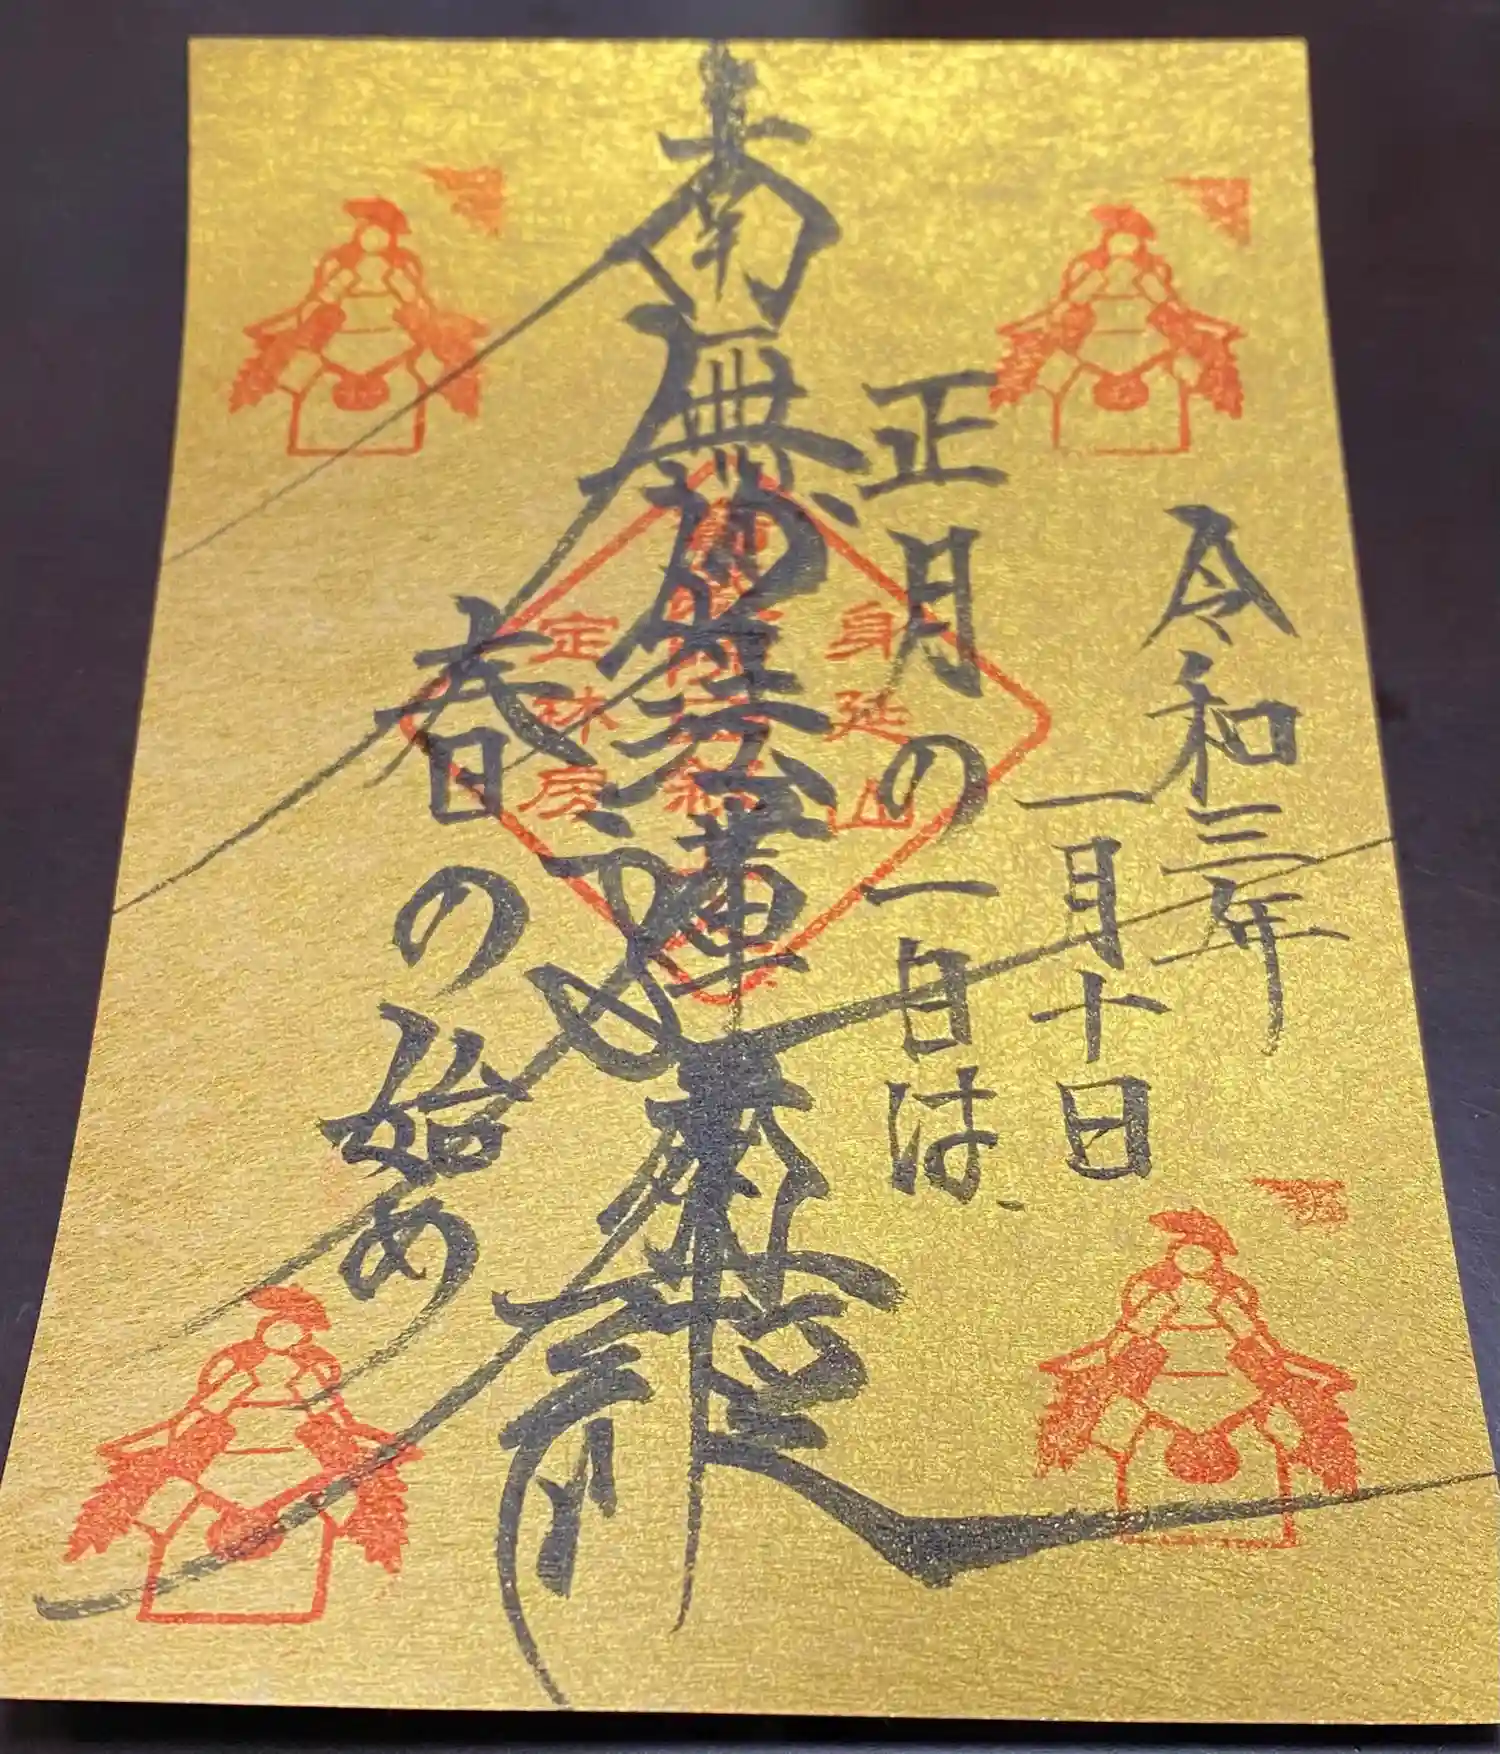 令和三年
一月十日
正月の一日は、
身延山
南無妙法蓮華経
定林房
春日の始め